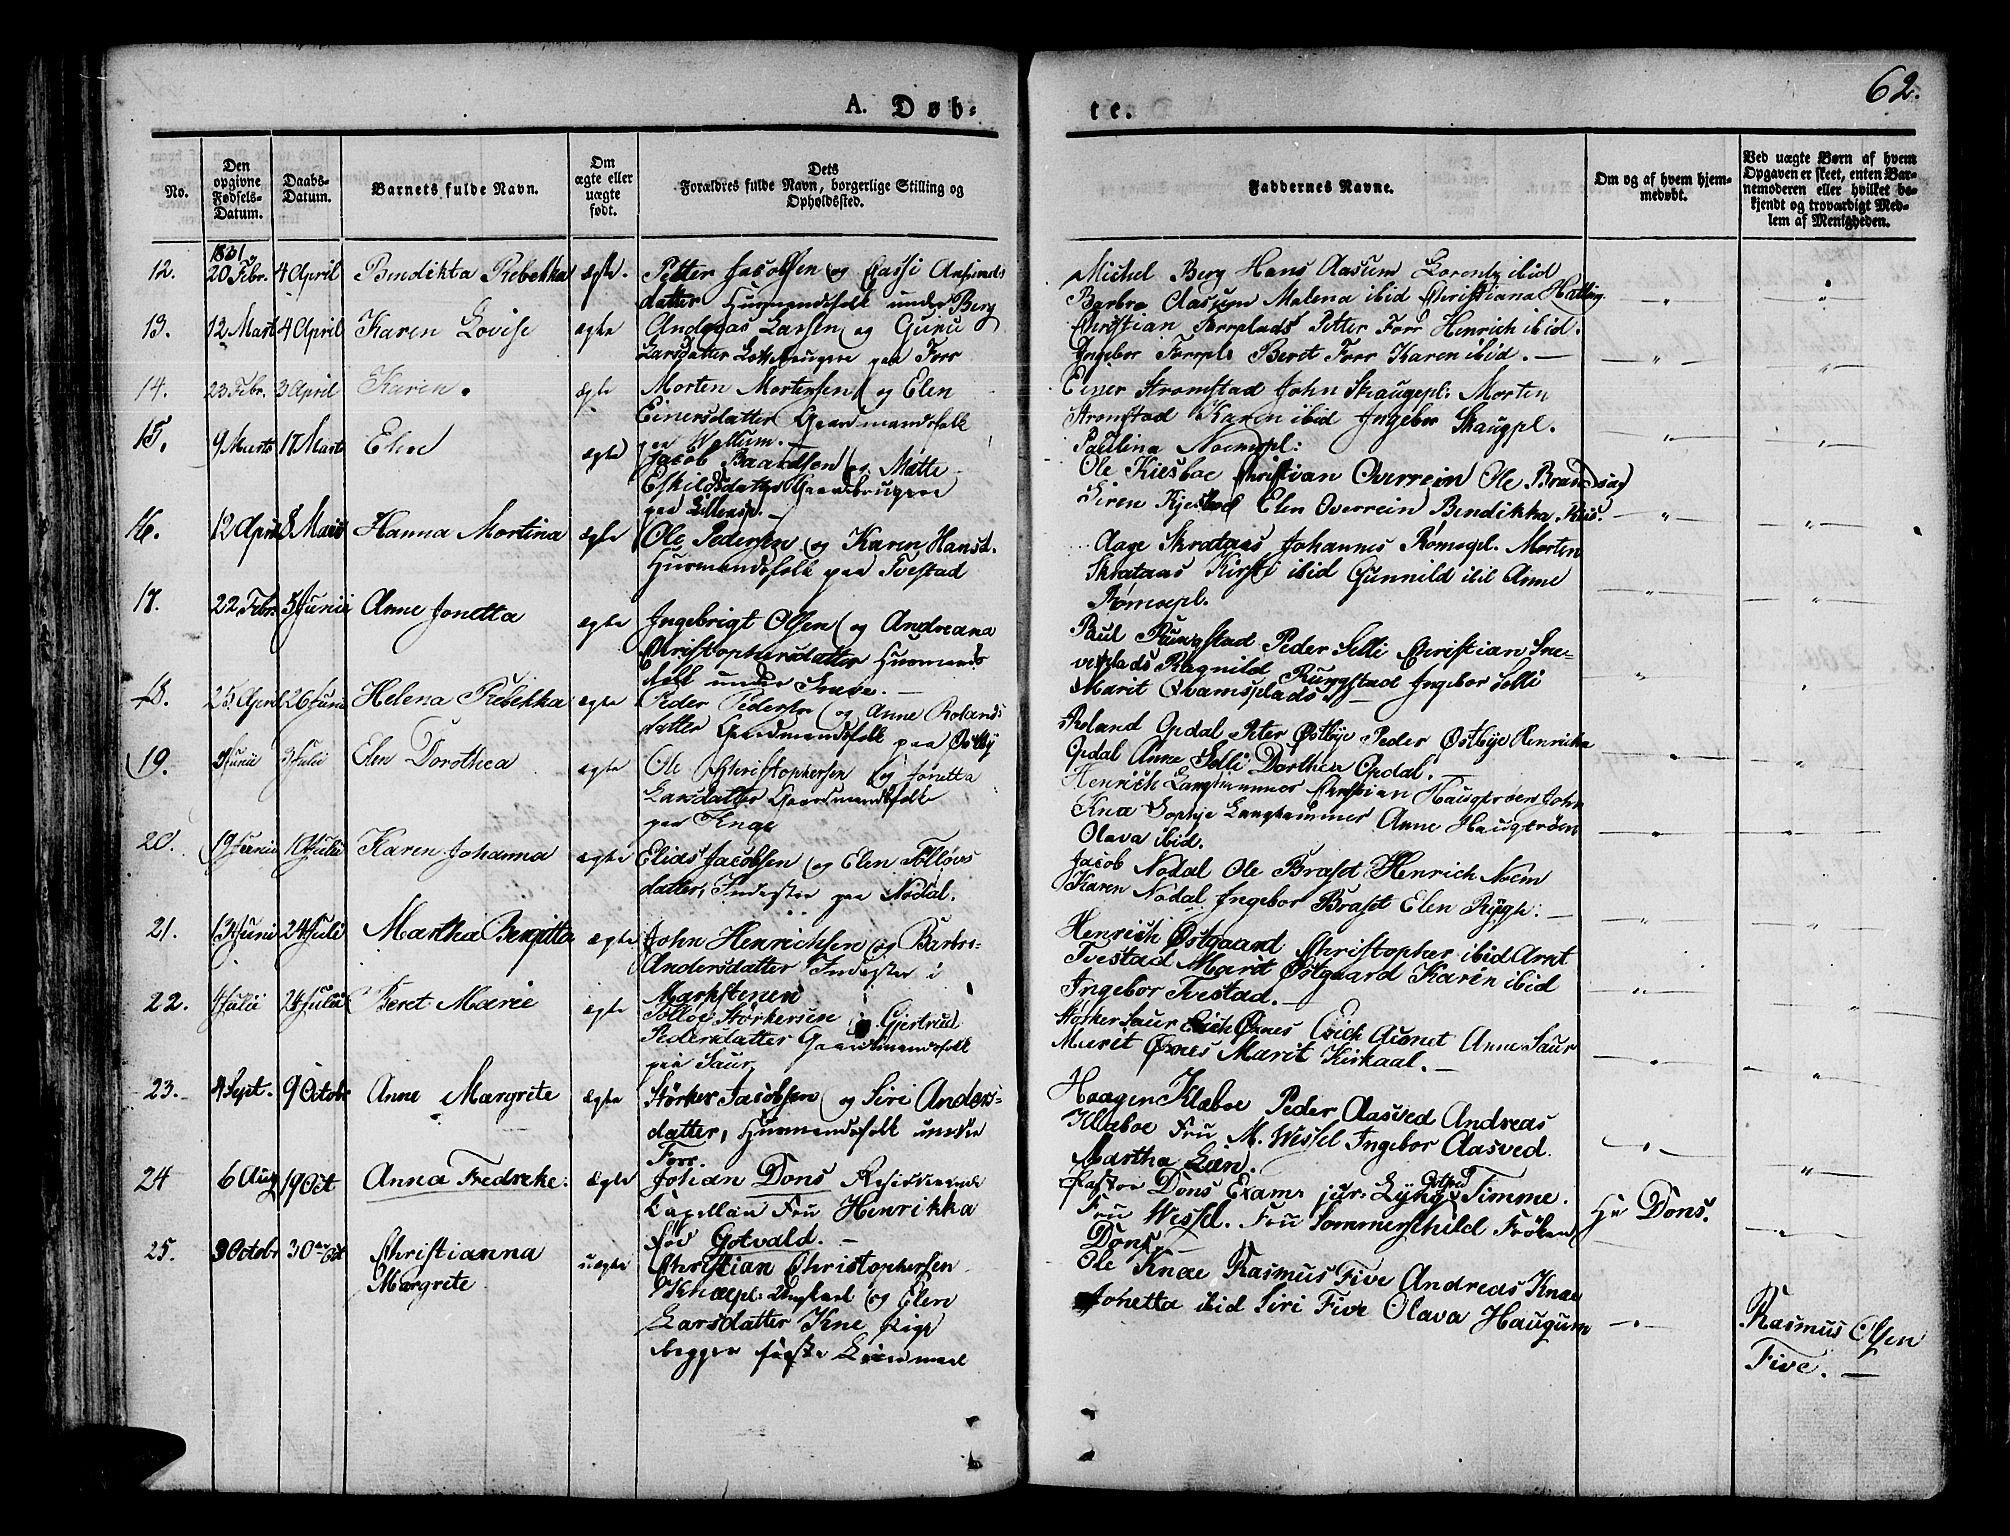 62.
A. Døb-
te.
No.
Den opgivne Fødsels-Datum.
Daabs-Datum.
Barnets fulde Navn.
Om ægte eller uægte født.
Dets Forældres fulde Navn, borgerlige Stilling og Opholdssted.
Faddernes Navne.
Om og af hvem hjem-medøbt.
Ved uægte Børn af hvem Opgaven er skeet, enten Bar-nemoderen eller hvilket be-kjendt og troværdigt Med-lem af Menigheden.
1831
12. 20 Febr. 4 April Bendikta Rebekka ægte. Petter Jacobsen og
datter Huusmandsfolk under Berg
Michel Berg Hans Aasum Lorentz ibid
Barbra Aasum Malena ibid Christiana Halling
13. 12 Marts 4 April Karen Lovise ægte Andreas Larsen og Guru
Larsdatter paa Forr
Christian Forrplads Petter Forr Henrich ibid.
Ingebor Forrpl: Beret Forr Karen ibid. —
14. 23 Febr. 3 April Karen. ægte Morten Mortensen og Elen
Einersdatter Gaardmandsfolk
paa Wollum. —
Einer Stromstad John Skaugepl: Morten
Stromstad Karen ibid Ingebor Skaugpl.
Paulina Noemspl:
15. 9 Marts 17 Marts Elen ægte Jacob Baardsøn og Mette
Eskildsdatter Gaardbrugere
paa
Ole Kiesboe Christian Overrein Ole
Siren Elen Overrein Bendikka
16. 12 April 8 Marts Hanna Mortina ægte Ole Pedersen og Karen Hansd.
Huusmandsfolk paa Tvestad
Aage Skrataas Johannes Rømoepl. Morten
Skrataas Kirsti ibid Gunnild ibid Anne
Rømoepl.
17. 22 Febr. 5 Junii Anne Jonetta ægte Ingebrigt Olsen og Andreana
Christophersdatter Huusmands
folk under Sneve. —
Paul Rungstad Peder Selli Christian Sne-
veplads Ragnild Rungstad Ingebor Selli
Marit Qvamsplads —
18. 25 April 26 Juni Helena Rebekka ægte Peder Pedersen og Anne Rolands
datter Gaardmandsfolk paa Østby
Roland Opdal Peter Østbye Peder Østbye Henrikka
Opdal Anne Selli Dorthea Opdal. —
19. Junii 3 Julii Elen Dorothea ægte Ole Christophersen og Jonetta
Larsdatter Gaardmandsfolk
paa Knæ
Henrich Langhammer Christian Haugtrøen John
Knæ Sophje Langhammer Anne Haugtrøen
Olava ibid.
20. 19 Junii 10 Julii Karen Johanna ægte Elias Jacobsen og Elen Tølløvs
datter, Inderster paa Nodal.
Jacob Nodal Ole Braset Henrich Noem
Karen Nodal Ingebor Braset Elen Rygh. —
21. 13 Juni 24 Juli Martha Bergitta ægte John Henrichsen og Barbro
Andersdatter Inderster i
Markstenen
Henrich Østgaard Christopher ibid Arnt
Tvestad Marit Østgaard Karen ibid
Ingebor Tvestad. —
22. 4 Julii 24 Julii Beret Marie ægte Tølløv Størkersen Gjertrud
Pedersdatter Gaardmandsfolk
paa Saur
Størker Saur Erich Øxnes Erich Anne Saur
Marit Øxnes Marit Kirkaal. —
23. 4 Sept. 9 Octobr Anne Margrete ægte Størker Jacobsen og Siri Anders-
datter, Huusmandsfolk under
Forr.
Haagen Klaboe Peder Aasved Andreas
Klaboe Fru M. Wessel Ingebor Aasved.
Martha Lein.
24 6 Aug 19 Oct Anna Fredreke. ægte Johan Dons Residerende
Capellan Fru Henrikka
fød Gotvald. —
Pastor Dons Exam. jur: Lyng Timme.
Fru Wessel. Fru Sommerschild Frøken
Dons. —
Hr Dons.
25. 3 Octobr 30 Oct Christianna
Margrete uægte Christian Christophersen
Knæpl: Ungkarl og Elen
Larsdatter Kne Pige
begges første Leiermaal
Ole Knæ Rasmus Five Andreas Knæ
Jonetta ibid Siri Five Olava Haugum
Rasmus Olsen
Five. —